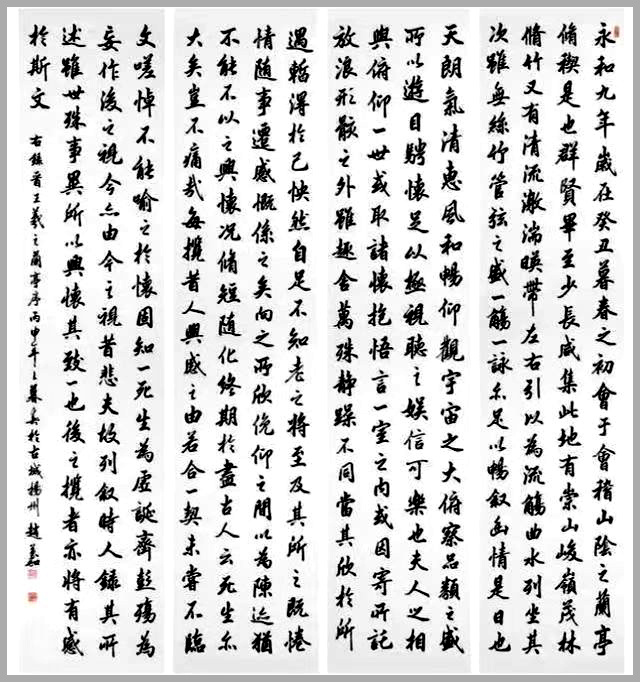 永和九年歲在癸丑暮春之初會于會稽山陰之蘭亭
脩稧是也群賢畢至少長咸集此地有崇山峻嶺茂林
脩竹又有清流激湍暎帶左右引以為流觴曲水列坐其
次雖無絲竹管弦之盛一觴一詠亦足以暢叙幽情是日也
天朗氣清惠風和暢仰觀宇宙之大俯察品類之盛
所以遊目騁懷足以極視聽之娛信可樂也夫人之相
與俯仰一世或取諸懷抱悟言一室之內或因寄所託
放浪形骸之外雖趣舍萬殊靜躁不同當其欣於所
遇暫得於己怏然自足不知老之將至及其所之既惓
情隨事遷感慨係之矣向之所欣俛仰之間以為陳迹猶
不能不以之興懷況脩短隨化終期於盡古人云死生亦
大矣豈不痛哉每攬昔人興感之由若合一契未嘗不臨
文嗟悼不能喻之於懷固知一死生為虛誕齊彭殤為
妄作後之視今亦由今之視昔悲夫故列叙時人錄其所
述雖世殊事異所以興懷其致一也後之攬者亦將有感
於斯文
右錄晉王羲之蘭亭序丙申年之暮 於古城揚州 趙